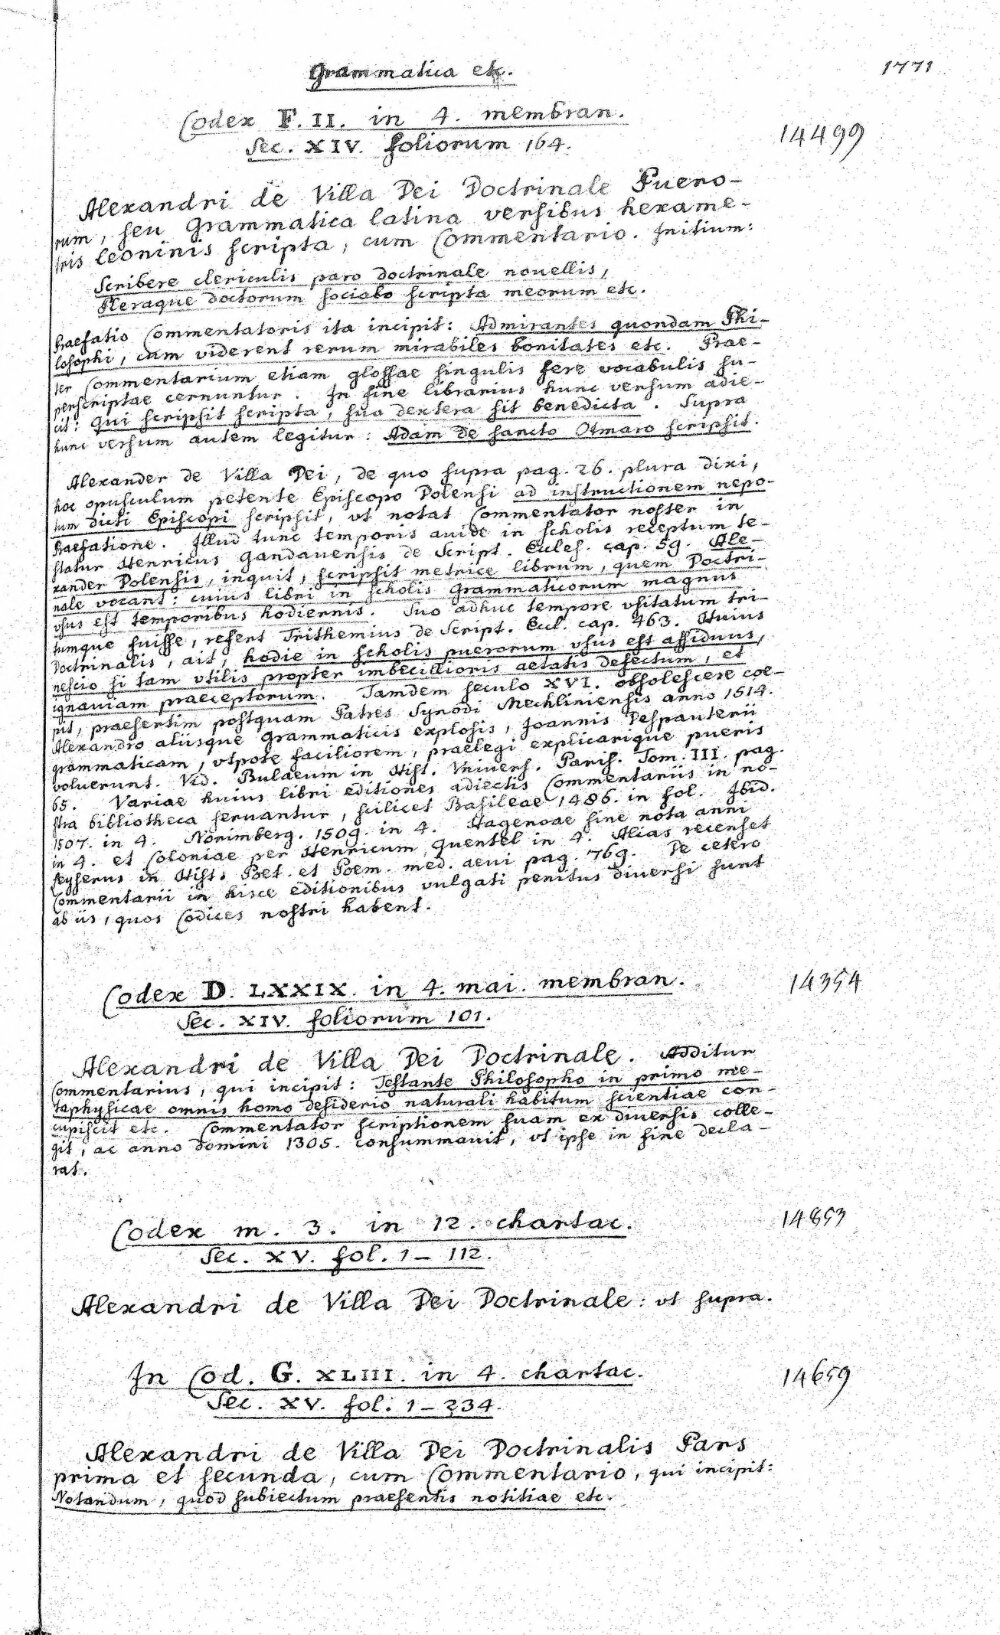 Grammatica etc.
1771
Codex F. II. in 4. membran.
Sec. XIV. foliorum 164.
14499
Alexandri de Villa Dei Doctrinale Puero-
rum, seu Grammatica latina versibus hexame-
tris leoninis scripta, cum Commentario. Initium:
Scribere clericulis paro doctrinale novellis,
Pleraque doctorum sociabo scripta meorum etc.
Praefatio Commentatoris ita incipit: Admirantes quondam Phi-
losophi, cum viderent rerum mirabiles bonitates etc. Prae-
ter Commentarium etiam glossae singulis fere vocabulis su-
perscriptae cernuntur. In fine librarius hunc versum adie-
cit: Qui scripsit scripta, sua dextera sit benedicta. Supra
hunc versum autem legitur: Adam de sancto Otmaro scripsit.
Alexander de Villa Dei, de quo supra pag. 26. plura dixi,
hoc opusculum petente Episcopo Dolensi ad instructionem nepo-
tum dicti Episcopi scripsit, vt notat Commentator noster in
Praefatione. Illud tunc temporis auide in scholis receptum te-
statur Henricus Gandauensis de Script. Eccles. cap. 59. Ale-
xander Dolensis, inquit, scripsit metrice librum, quem Doctri-
nale vocant: cuius libri in scholis Grammaticorum magnus
vsus est temporibus hodiernis. Suo adhuc tempore vsitatum tri-
tumque fuisse, refert Trithemius de Script. Eccl. cap. 463. Huius
Doctrinalis, ait, hodie in scholis puerorum vsus est assiduus,
nescio si tam vtilis propter imbecillioris aetatis defectum, et
ignauiam praeceptorum. Tamdem seculo XVI. obsolescere coe-
pit, praesertim postquam Patres Synodi Mechliniensis anno 1514.
Alexandro aliisque Grammaticis explosis, Joannis Despauterii
grammaticam, vtpote faciliorem, praelegi explicarique pueris
voluerunt. Vid. Bulaeum in Hist. Vniuers. Paris. Tom. III. pag.
65. Variae huius libri editiones adiectis Commentariis in no-
stra bibliotheca seruantur, scilicet Basileae 1486. in fol. Ibid.
1507. in 4. Norimberg. 1509. in 4. Hagenoae sine nota anni
in 4. et Coloniae per Henricum Quentel in 4. Alias recenset
Leyserus in Hist. Poet. et Poem. med. aeui pag. 769. De cetero
Commentarii in hisce editionibus vulgati penitus diuersi sunt
ab iis, quos Codices nostri habent.
Codex D. LXXIX. in 4. mai. membran.
Sec. XIV. foliorum 101.
14354
Alexandri de Villa Dei Doctrinale. Additur
Commentarius, qui incipit: Testante Philosopho in primo me-
taphysicae omnis homo desiderio naturali habitum scientiae con-
cupiscit etc. Commentator scriptionem suam ex diuersis colle-
git, ac anno Domini 1305. consummauit, vt ipse in fine decla-
rat.
Codex m. 3. in 12. chartac.
Sec. XV. fol. 1 - 112.
14853
Alexandri de Villa Dei Doctrinale: vt supra.
In Cod. G. XLIII. in 4. chartac.
Sec. XV. fol. 1 - 234.
14659
Alexandri de Villa Dei Doctrinalis Pars
prima et secunda, cum Commentario, qui incipit:
Notandum, quod subiectum praesentis notitiae etc.